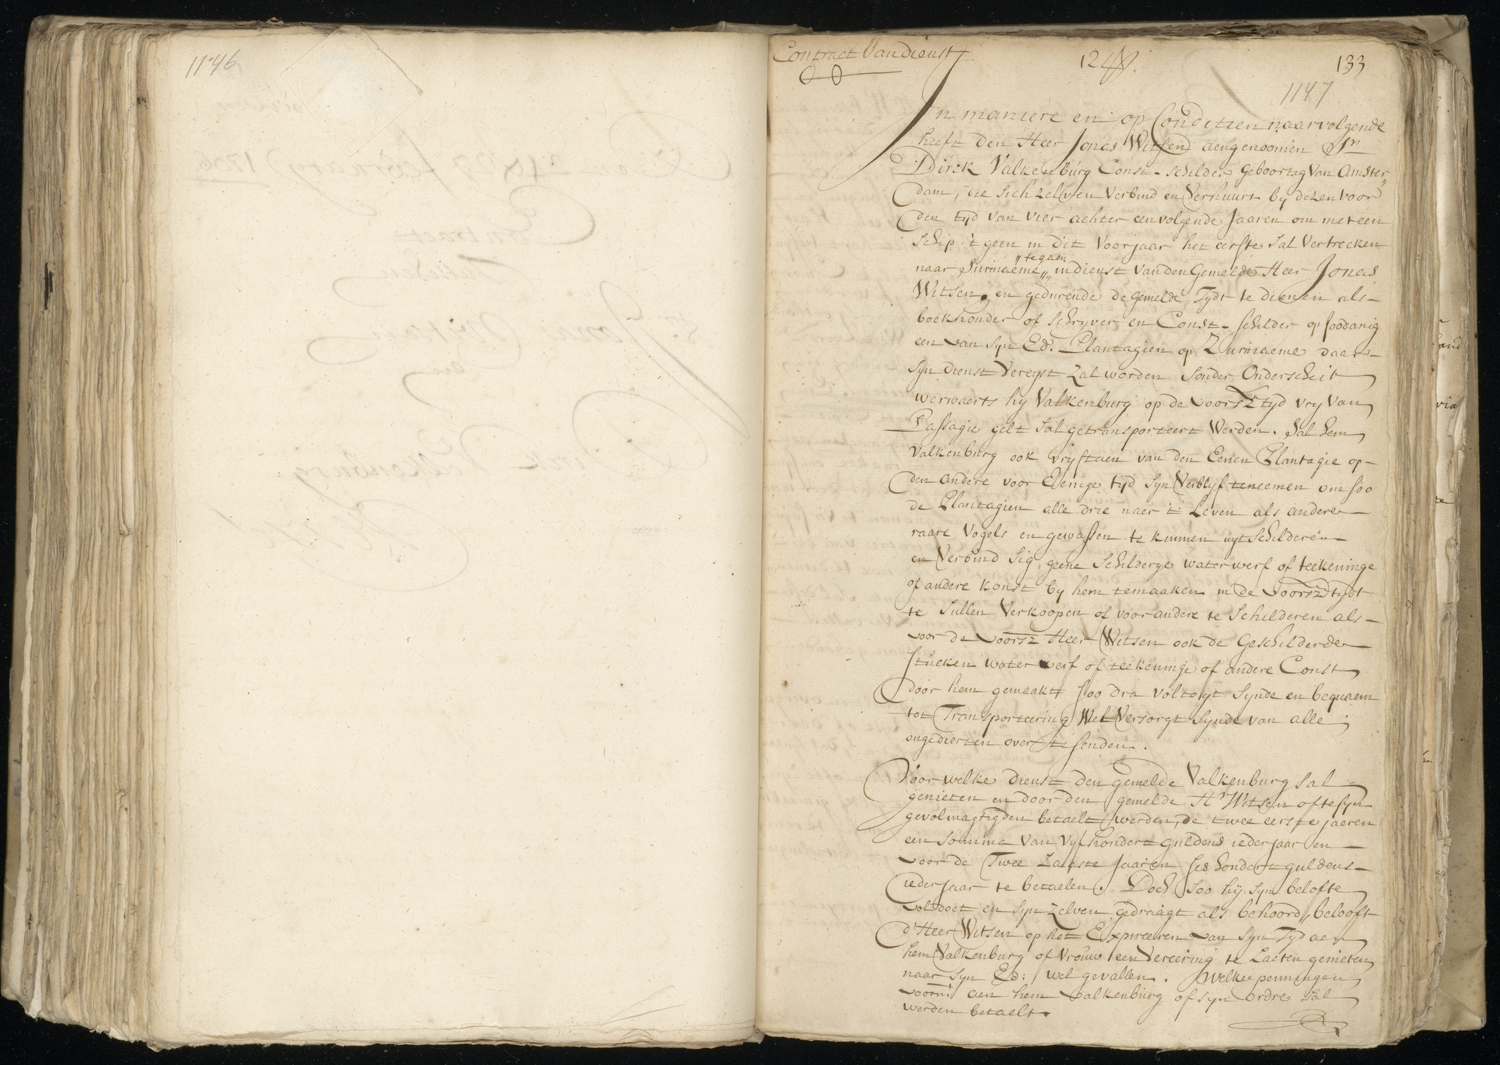 1146
Contract Van dienst
12
133
1147
In maniere en op Conditien naarvolgende
heeft den Heer Jonas Witsen aengenoomen Sr
Dirk Valkenburg Const-schilder geboortig Van Amster„
dam, die sich zelven Verbind en Verhuurt by dezen voor
den tyd van vier achter eenvolgende Jaaren om met een
schip 't geen in dit Voorjaar het eerste sal Vertrecken
naar Suriname „te gaen„ in dienst van den Gemelde Heer Jonas
Witsen, en gedurende de gemelde Tydt te dienen als-
boekhouder of schryver, en Const-schilder op soodanig
een van syn Ed: Plantagien op Zurinaeme daar-
syn dienst Vereyst zal worden sonder Onderscheit
werwaerts hy Valkenburg op de voorsz tyd vry van
Passagie gelt sal getransporteert Werden. Sal hem
Valkenburg ook vrystaen van den Eenen Plantagie op-
den andere voor Eenige tyd syn Verblyf te neemen om soo
de Plantagien alle drie naer 't Leven als andere
raare Vogels en gewassen te kunnen uytschilderen
en Verbind sig, geene schilderye waterwerf of teekeninge
of andere konst by hem te maaken in de Voorsz tydt
te sullen Verkoopen of voor andere te schilderen als-
voor de voorsz Heer Witsen ook de Geschilderde
stucken water werf of teekeninge of andere Const
door hem gemaakt soo dra voltoyt synde en bequaem
tot Transporteering Wel Versorgt synde van alle
ongedierten over te senden.
Voor welke dienst den gemelde Valkenburg sal
genieten en door den gemelde Hr Witsen ofte syn
gevolmagtigden betaelt werden, de twee eerste jaeren
een somma van vyfhondert guldens ieder jaar en
voor de Twee Laaste Jaaren ses hondert guldens-
ieder jaar te betaelen. Doch soo hy syn belofte
voldoet en syn zelven gedraagt als behoord, belooft
d'Heer Witsen op het Expireeren van syn Tyd aen
hem Valkenburg of Vrouw een Vereering te Laeten genieten
naar syn Ed: wel gevallen. Welke penningen
voorn: aen hem Valkenburg of syn ordre sal
werden betaelt.